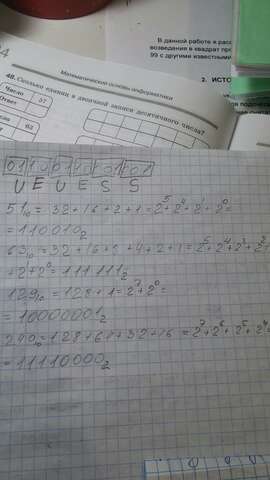 В данной работе я расс
возведения в квадрат про
99 с другими известными
2. ИСТО
Математические основы информатики
48. Сколько единиц в двоичной записи десятичного числа?
Число 57
Ответ
Число 63
U E U E S S
51₁₀ = 32+16+2+1=2⁵+2⁴+2¹+2⁰=
=110010₂
63₁₀=32+16+8+4+2+1=2⁵+2⁴+2³+2²
+2+2⁰=111111₂
129₁₀=128+1=2⁷+2⁰=
=10000001₂
240₁₀=128+64+32+16=2⁷+2⁶+2⁵+2⁴
=11110000₂